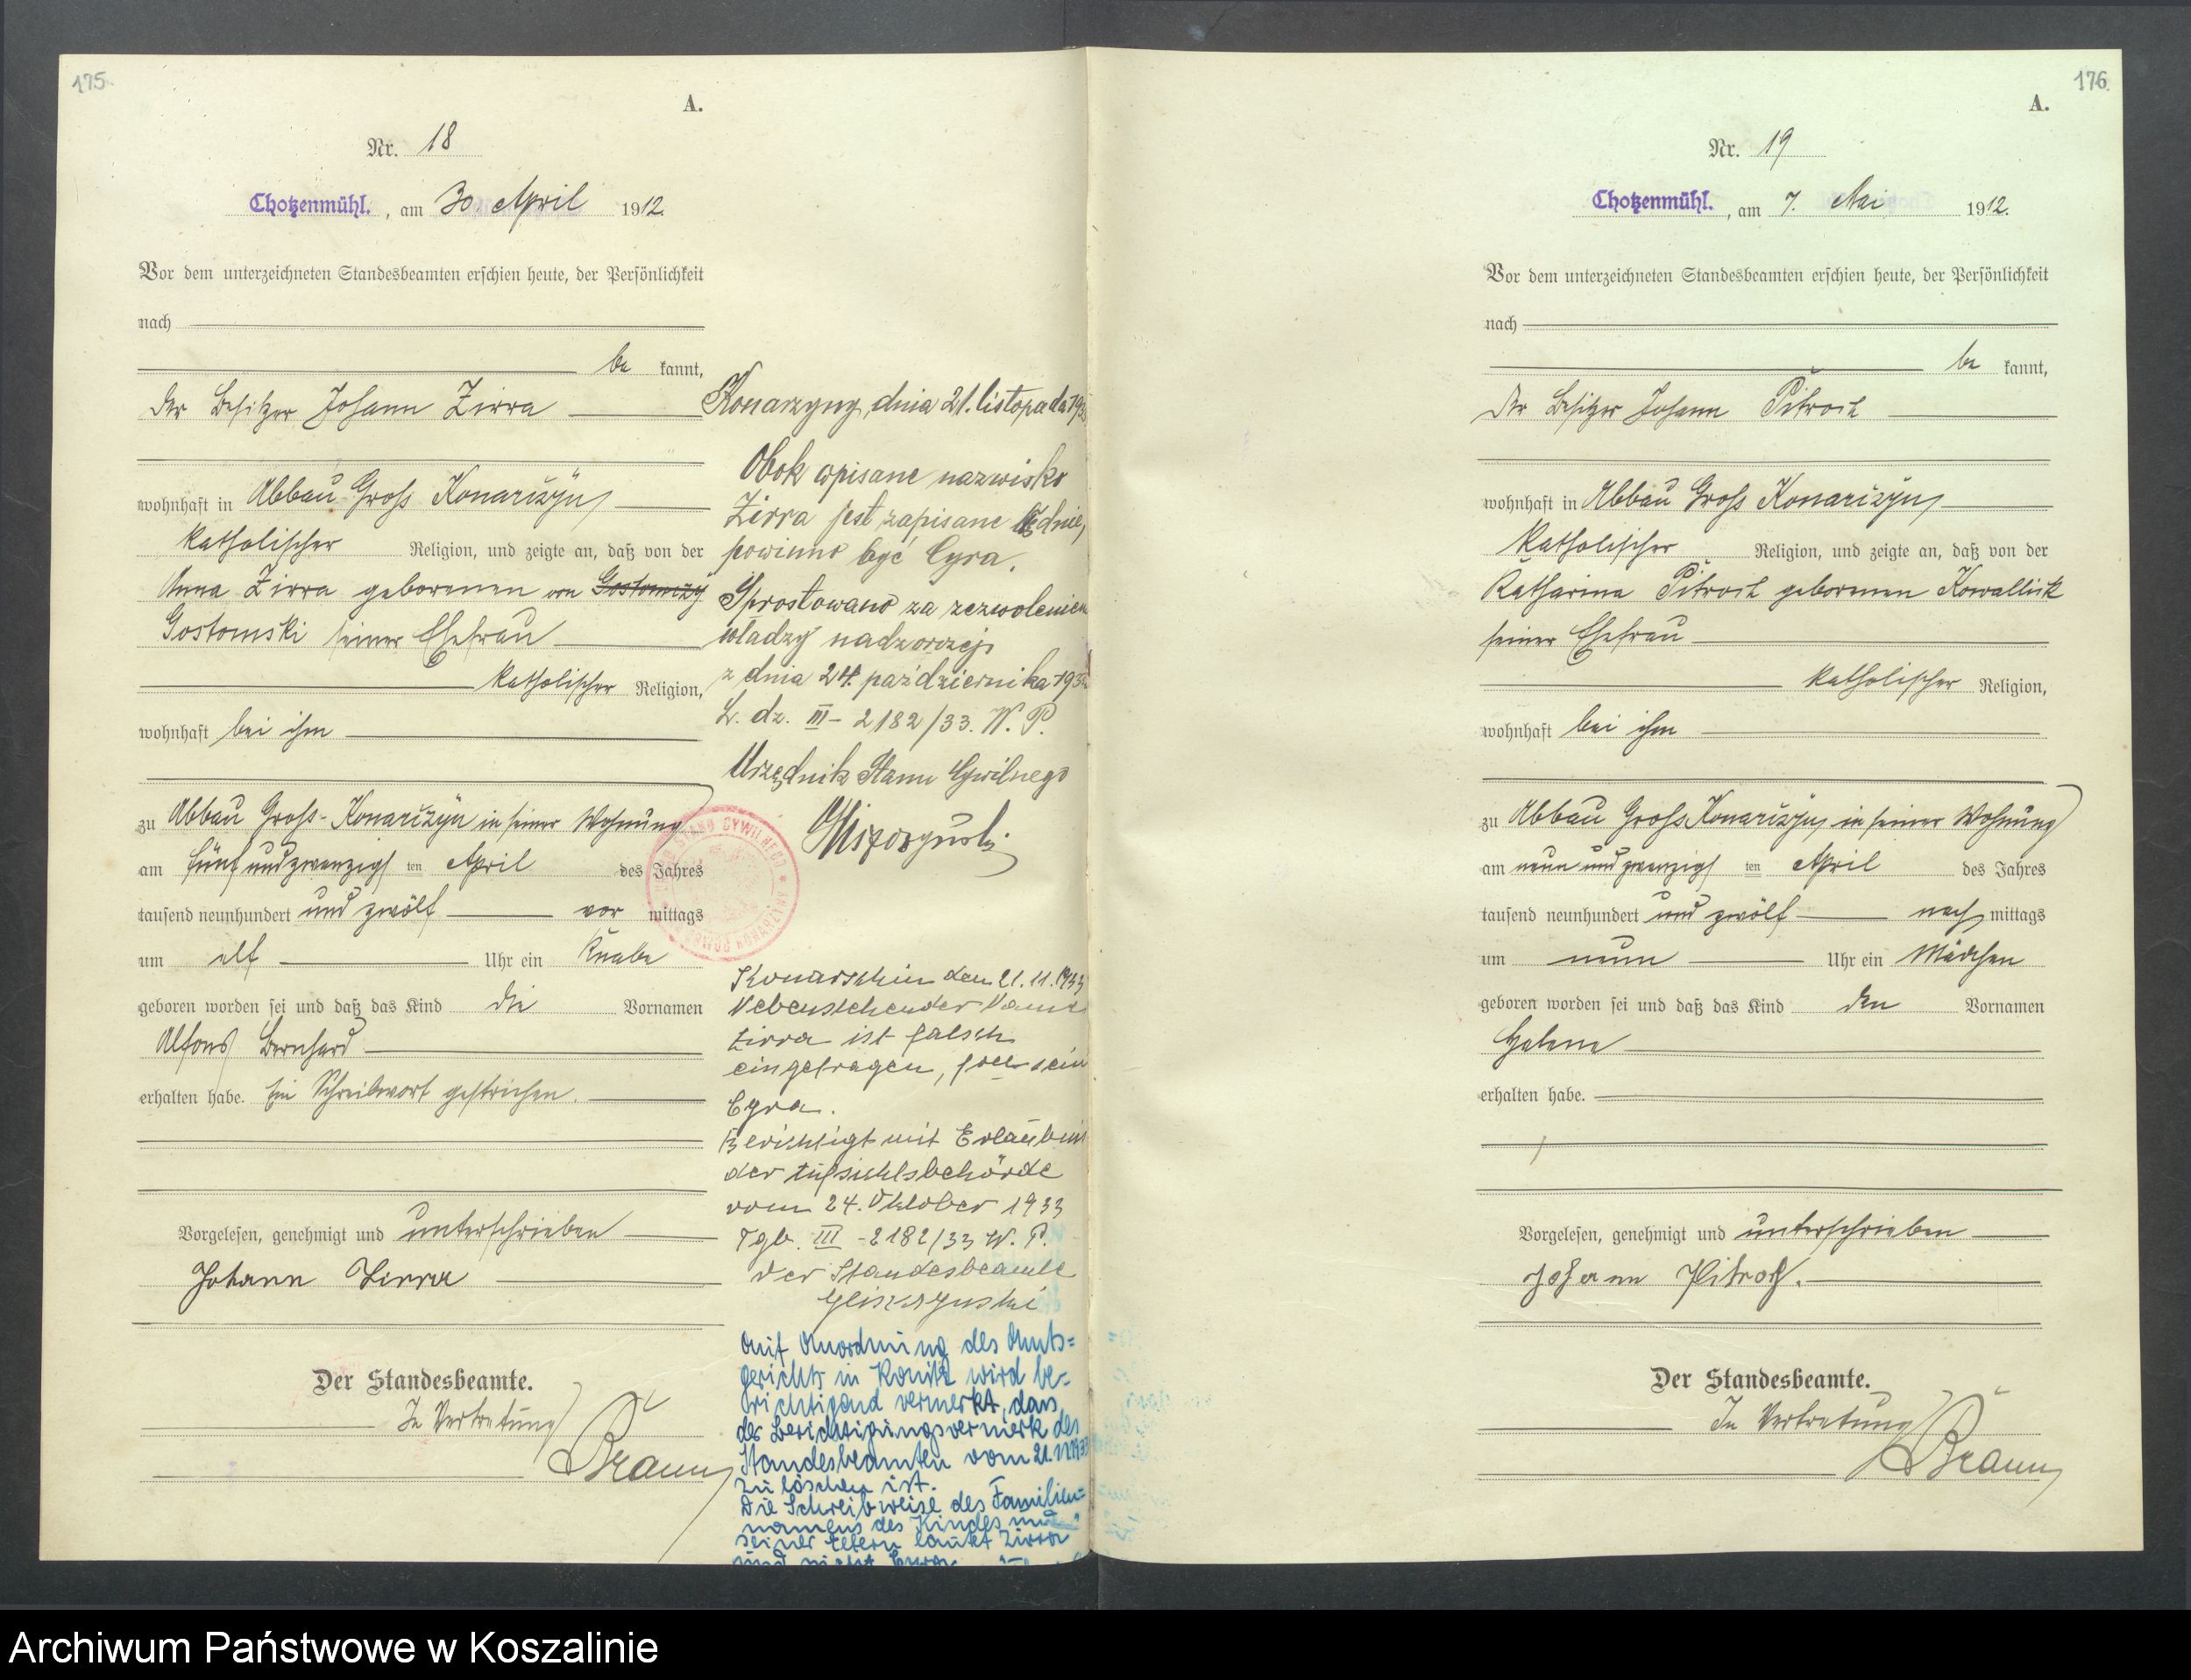 175.
A.
Nr. 18
Chotzenmühl. , am 30. April 1912.
Vor dem unterzeichneten Standesbeamten erschien heute, der Persönlichkeit
nach
be kannt,
der Besitzer Johann Zirra
wohnhaft in Abbau Groß Konarczyn
katholischer Religion, und zeigte an, daß von der
Anna Zirra geborenen von Gostomczy
Gostomski seiner Ehefrau
katholischer Religion,
wohnhaft bei ihm
zu Abbau Groß-Konarczyn in seiner Wohnung
am fünf und zwanzigs ten April des Jahres
tausend neunhundert und zwölf vor mittags
um elf Uhr ein Knabe
geboren worden sei und daß das Kind die Vornamen
Alfons Bernhard
erhalten habe. Ein Schreibwort gestrichen.
Vorgelesen, genehmigt und unterschrieben
Johann Zirra
Der Standesbeamte.
In Vertretung
Braun
Konarzyny, dnia 21. listopada 193
Obok wpisane nazwisko
Zirra jest zapisane błędnie,
powinno być Cyra.
Sprostowano za zezwoleniem
władzy nadzorczej
z dnia 24. października 193
L. dz. III - 2182/33. W. P.
Urzędnik Stanu Cywilnego
Konarschin den 21.11.1933
Nebenstehender Name
Zirra ist falsch
eingetragen, soll sein
Cyra.
Berichtigt mit Erlaubnis
der Aufsichtsbehörde
vom 24. Oktober 1933
Tgb. III - 2182/33 W. P.
Der Standesbeamte
Auf Anordnung des Amts=
gerichts in Konitz wird be=
richtigend vermerkt, dass
der Berichtigungsvermerk des
Standesbeamten vom 21.11.1933
zu löschen ist.
Die Schreibweise des Familien=
namens des Kindes und
seiner Eltern lautet „Zirra"
und nicht Cyra
176.
A.
Nr. 19
Chotzenmühl. , am 7. Mai 1912.
Vor dem unterzeichneten Standesbeamten erschien heute, der Persönlichkeit
nach
be kannt,
der Besitzer Johann Pitroch
wohnhaft in Abbau Groß Konarczyn
katholischer Religion, und zeigte an, daß von der
Katharina Pitroch geborenen Kowallik
seiner Ehefrau
katholischer Religion,
wohnhaft bei ihm
zu Abbau Groß Konarczyn in seiner Wohnung
am neun und zwanzigs ten April des Jahres
tausend neunhundert und zwölf nach mittags
um neun Uhr ein Mädchen
geboren worden sei und daß das Kind den Vornamen
Helene
erhalten habe.
Vorgelesen, genehmigt und unterschrieben
Johann Pitroch.
Der Standesbeamte.
In Vertretung
Braun
Archiwum Państwowe w Koszalinie